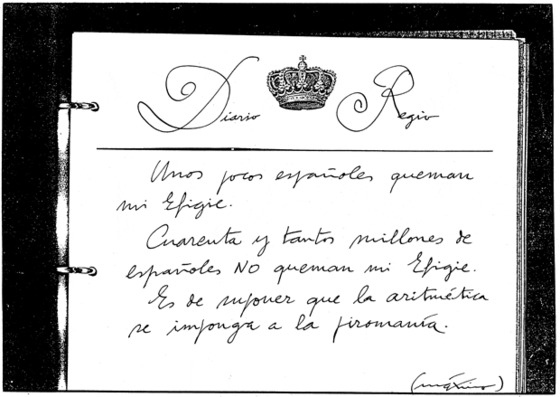 Diario Regio
Unos pocos españoles queman
mi Efigie.
Cuarenta y tantos millones de
españoles NO queman mi Efigie.
Es de suponer que la aritmética
se imponga a la piromanía.
(máximo)